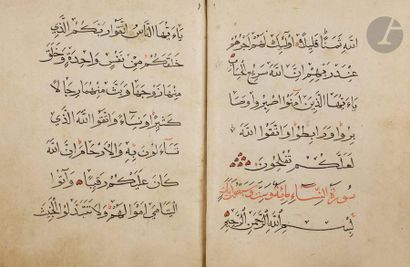 الله ثمنا قليلا أولئك لهم أجرهم
عند ربهم إن الله سريع الحساب
ياءيها الذين آمنوا اصبروا وصا
بروا ورابطوا واتقوا الله
لعلكم تفلحون
سورة النساء مائة وست وسبعون آية
بسم الله الرحمن الرحيم
ياءيها الناس اتقوا ربكم الذي
خلقكم من نفس واحدة وخلق
منها زوجها وبث منهما رجالا
كثيرا ونساء واتقوا الله الذي
تساءلون به والأرحام إن الله
كان عليكم رقيبا وآتوا
اليتامى أموالهم ولا تتبدلوا الخبيث